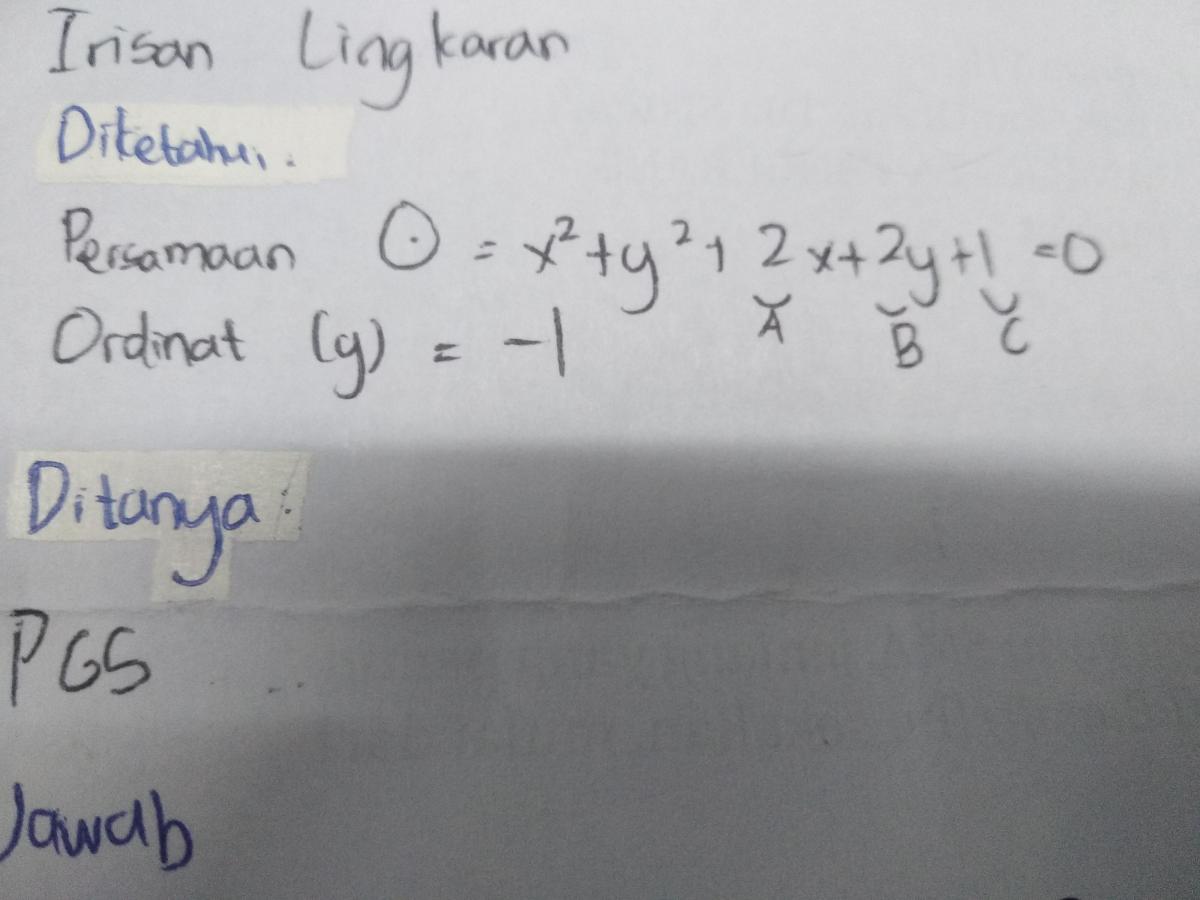 Irisan Lingkaran
Diketahui:
Persamaan ⊙ = x²+y²+2x+2y+1=0
A B C
Ordinat (y) = -1
Ditanya:
PGS
Jawab